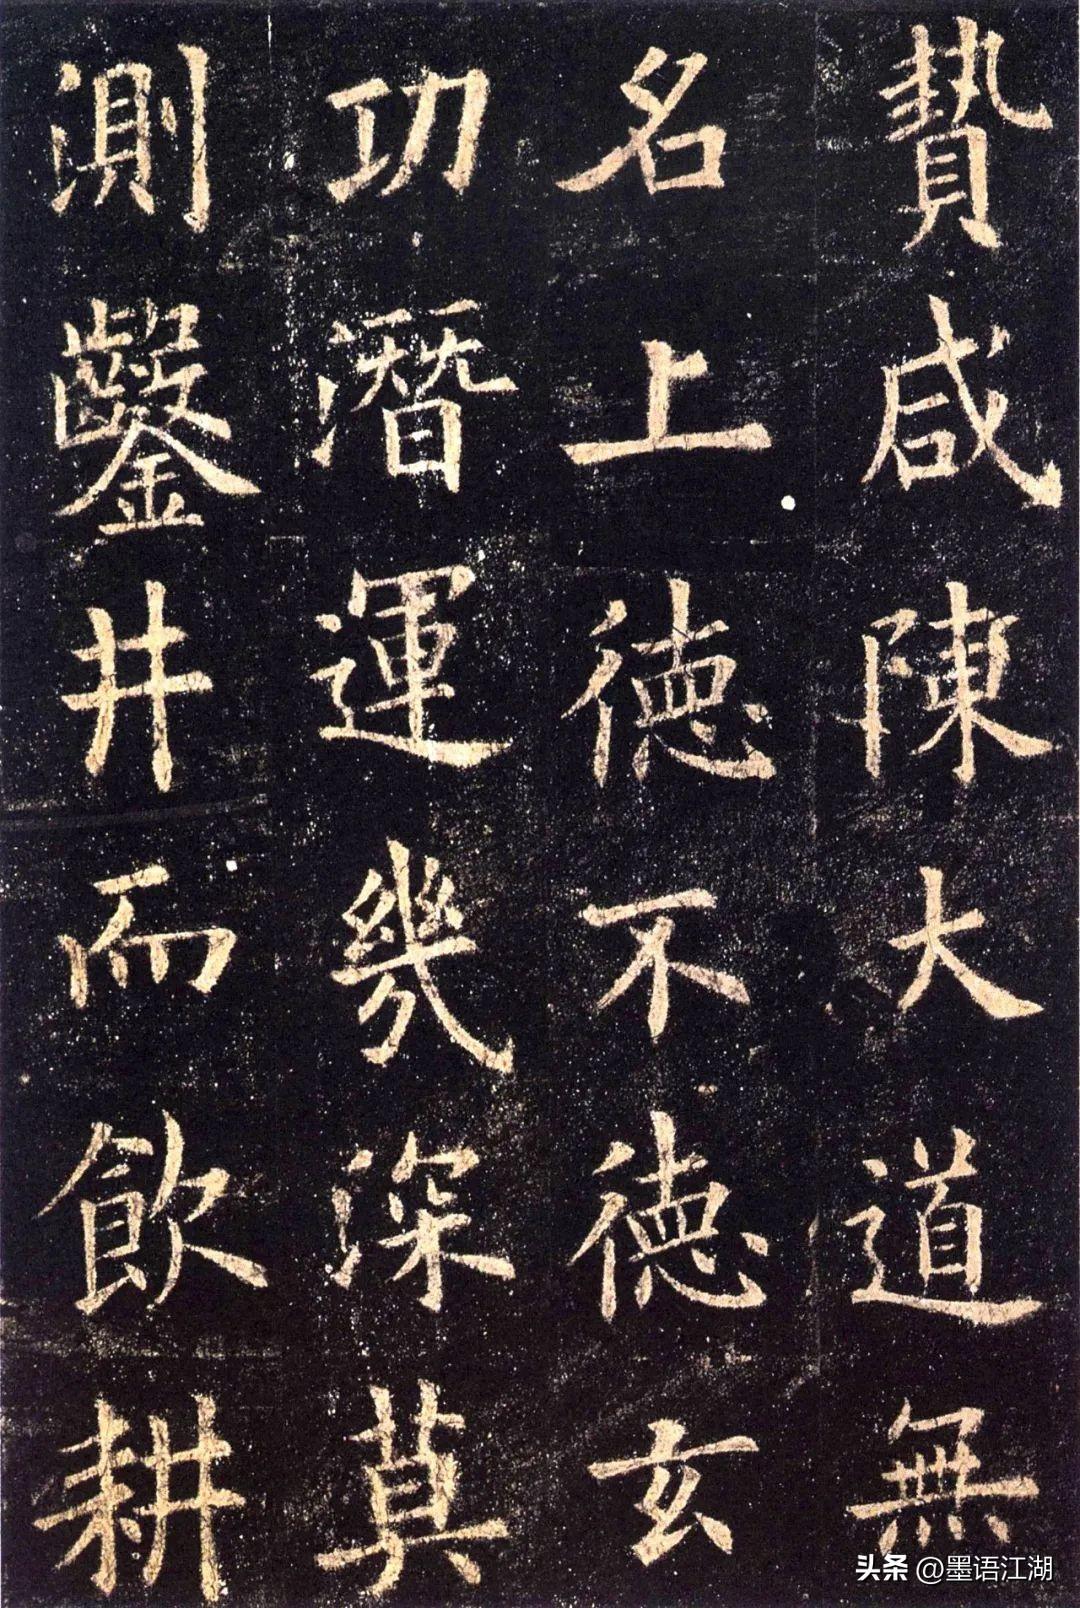 贄咸陳大道無
名上德不德玄
功潛運幾深莫
測鑿井而飲耕
头条 @墨语江湖